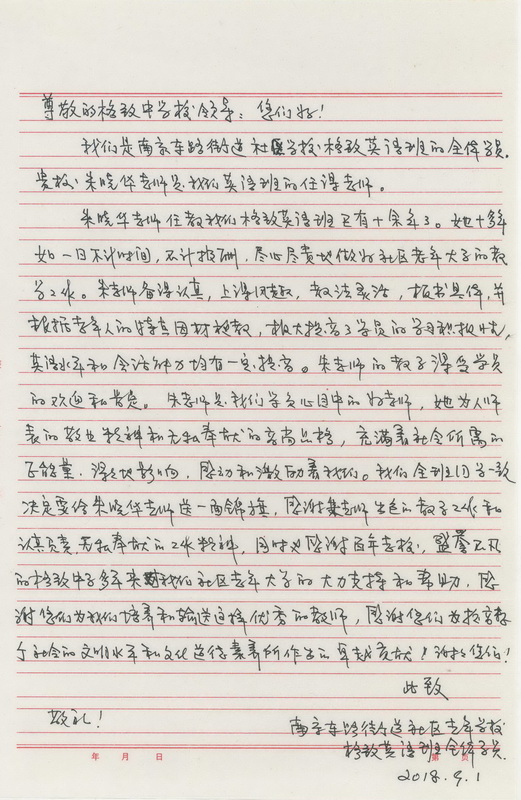 尊敬的格致中学校领导：您们好！
我们是南京东路街道社区学校格致英语班的全体学员。
贵校朱晓华老师是我们英语班的任课老师。
朱晓华老师任教我们格致英语班已有十余年了。她十多年
如一日不计时间，不计报酬，尽心尽责地做好社区老年大学的教
学工作。朱老师备课认真，上课风趣，教法灵活，板书具体，并
根据老年人的特点因材施教，极大提高了学员的学习积极性，
英语水平和会话能力均有一定提高。朱老师的教学深受学员
的欢迎和肯定。朱老师是我们学员心目中的好老师，她为人师
表的敬业精神和无私奉献的高尚品格，充满着社会所需的
正能量，深深地影响，感动和激励着我们。我们全班同学一致
决定要给朱晓华老师送一面锦旗，感谢朱老师出色的教学工作和
认真负责、无私奉献的工作精神，同时也感谢百年老校，盛誉不凡
的格致中学多年来对我们社区老年大学的大力支持和帮助，感
谢您们为我们培养和输送这样优秀的教师，感谢您们为提高整
个社会的文明水平和文化道德素养所作出的卓越贡献！谢谢您们！
此致
敬礼！
南京东路街道社区老年学校
格致英语班全体学员
2018.9.1
年 月 日 第 页